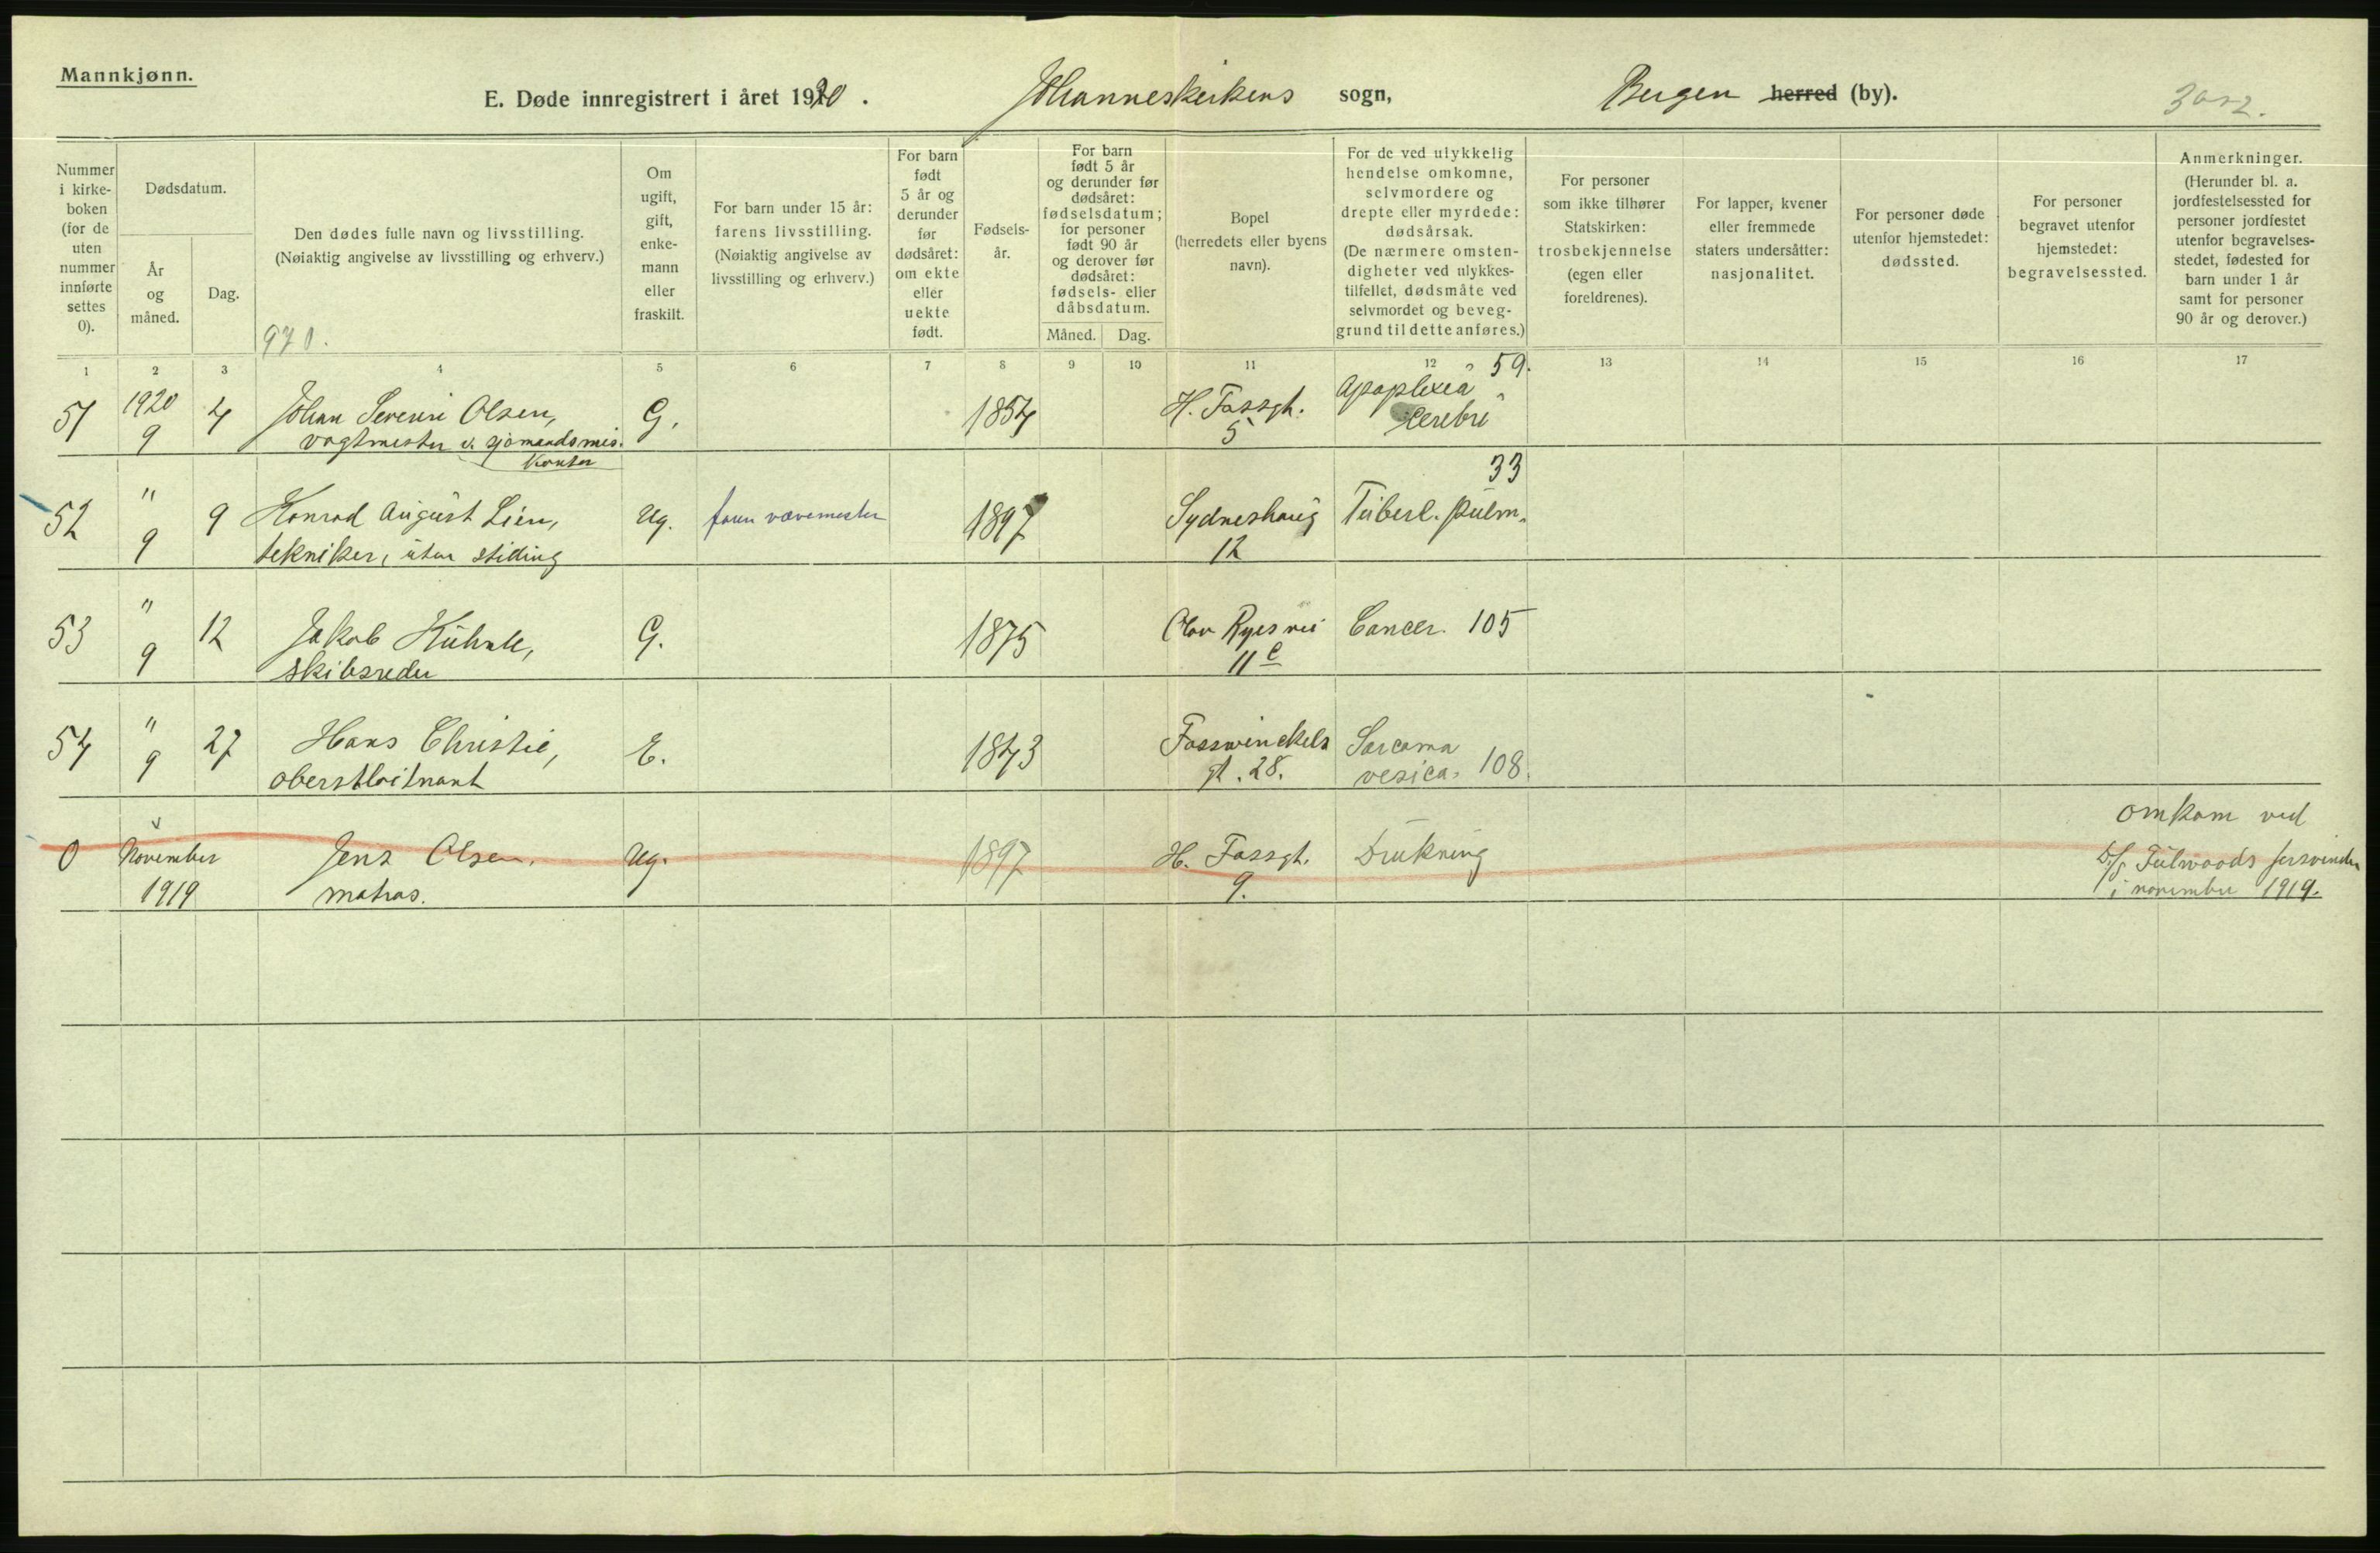 Mannkjønn.
E. Døde innregistrert i året 1920. Johanneskirkens sogn, Bergen herred (by).
Nummer i kirke-boken (for de uten nummer innførte settes 0).
Dødsdatum.
År og måned.
Dag.
Den dødes fulle navn og livsstilling.
(Nøiaktig angivelse av livsstilling og erhverv.)
970.
Om ugift, gift, enke-mann eller fraskilt.
For barn under 15 år: farens livsstilling.
(Nøiaktig angivelse av livsstilling og erhverv.)
For barn født 5 år og derunder før dødsåret: om ekte eller uekte født.
Fødsels-år.
For barn født 5 år og derunder før dødsåret: fødselsdatum; for personer født 90 år og derover før dødsåret: fødsels- eller dåbsdatum.
Måned. Dag.
Bopel (herredets eller byens navn).
For de ved ulykkelig hendelse omkomne, selvmordere og drepte eller myrdede: dødsårsak.
(De nærmere omsten-digheter ved ulykkes-tilfellet, dødsmåte ved selvmordet og beveg-grund til dette anføres.)
For personer som ikke tilhører Statskirken: trosbekjennelse (egen eller foreldrenes).
For lapper, kvener eller fremmede staters undersåtter: nasjonalitet.
For personer døde utenfor hjemstedet: dødssted.
For personer begravet utenfor hjemstedet: begravelsessted.
Anmerkninger.
(Herunder bl. a. jordfestelsessted for personer jordfestet utenfor begravelses-stedet, fødested for barn under 1 år samt for personer 90 år og derover.)
1 2 3 4 5 6 7 8 9 10 11 12 13 14 15 16 17
51 1920 9 4 Johan Severin Olsen, G. 1854 H. Fossgt. 5 Apoplexia cerebri 59.
vagtmester v. sjømandsmis. kontor
52 " 9 9 Konrad August Lien, Ug. faren vævemester 1897 Sydneshaug 12 Tuberl. pulm. 33
tekniker, uten stilling
53 " 9 12 Jakob Kühnle, G. 1875 Olav Ryes vei 11 c Cancer. 105
skibsreder
54 " 9 27 Hans Christie, E. 1843 Fosswinckels gt. 28. Sarcoma vesica. 108.
oberstløitnant
0 November 1919 Jens Olsen, Ug. 1897 H. Fossgt. 9. Drukning
matros.
omkom ved
D/S Fulwoods forsvinden
i november 1919.